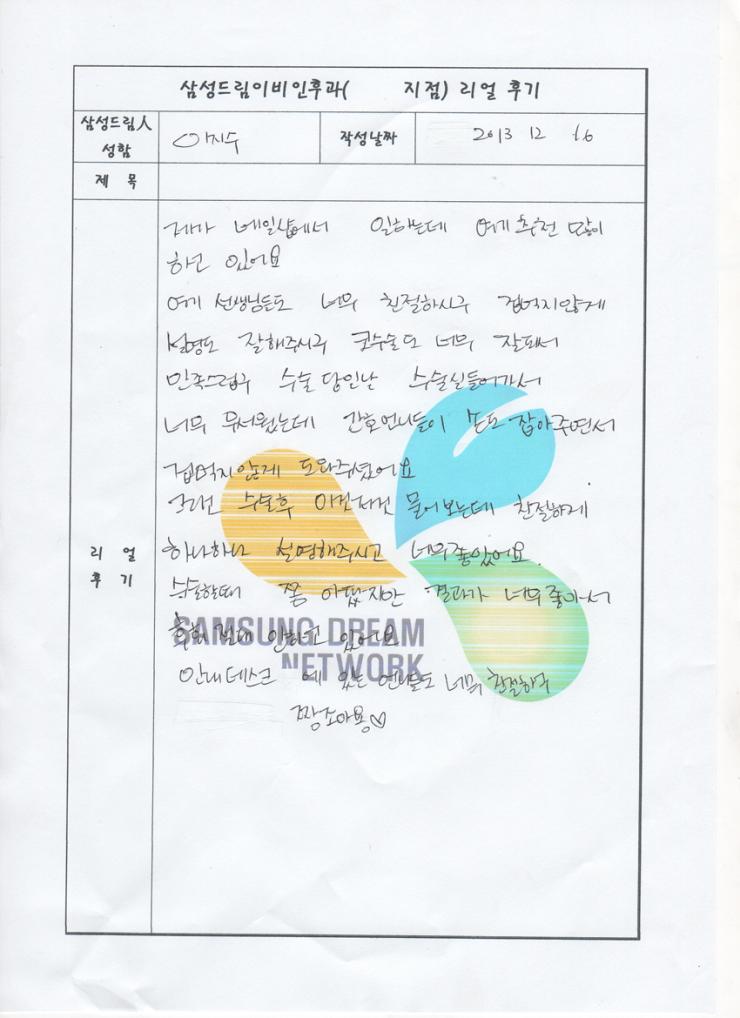 삼성드림이비인후과(      지점) 리얼 후기
삼성드림人 성함
이지수
작성날짜
2013 12 16
제 목
리 얼 후 기
제가 네일샵에서 일하는데 여기 추천 많이
하고 있어요
여기 선생님들도 너무 친절하시구 겁먹지않게
설명도 잘해주시구 코수술도 너무 잘되서
만족스럽구 수술 당일날 수술실들어가서
너무 무서웠는데 간호언니들이 손도 잡아주면서
겁먹지않게 도와주셨어요
그리고 수술후 이것저것 물어보는데 친절하게
하나하나 설명해주시고 너무좋았어요.
수술할때 쫌 아팠지만 결과가 너무좋아서
후회 절대 안하고 있어요
안내데스크 에 있는 언니들도 너무 친절하구
짱조아용♡
SAMSUNG DREAM
NETWORK